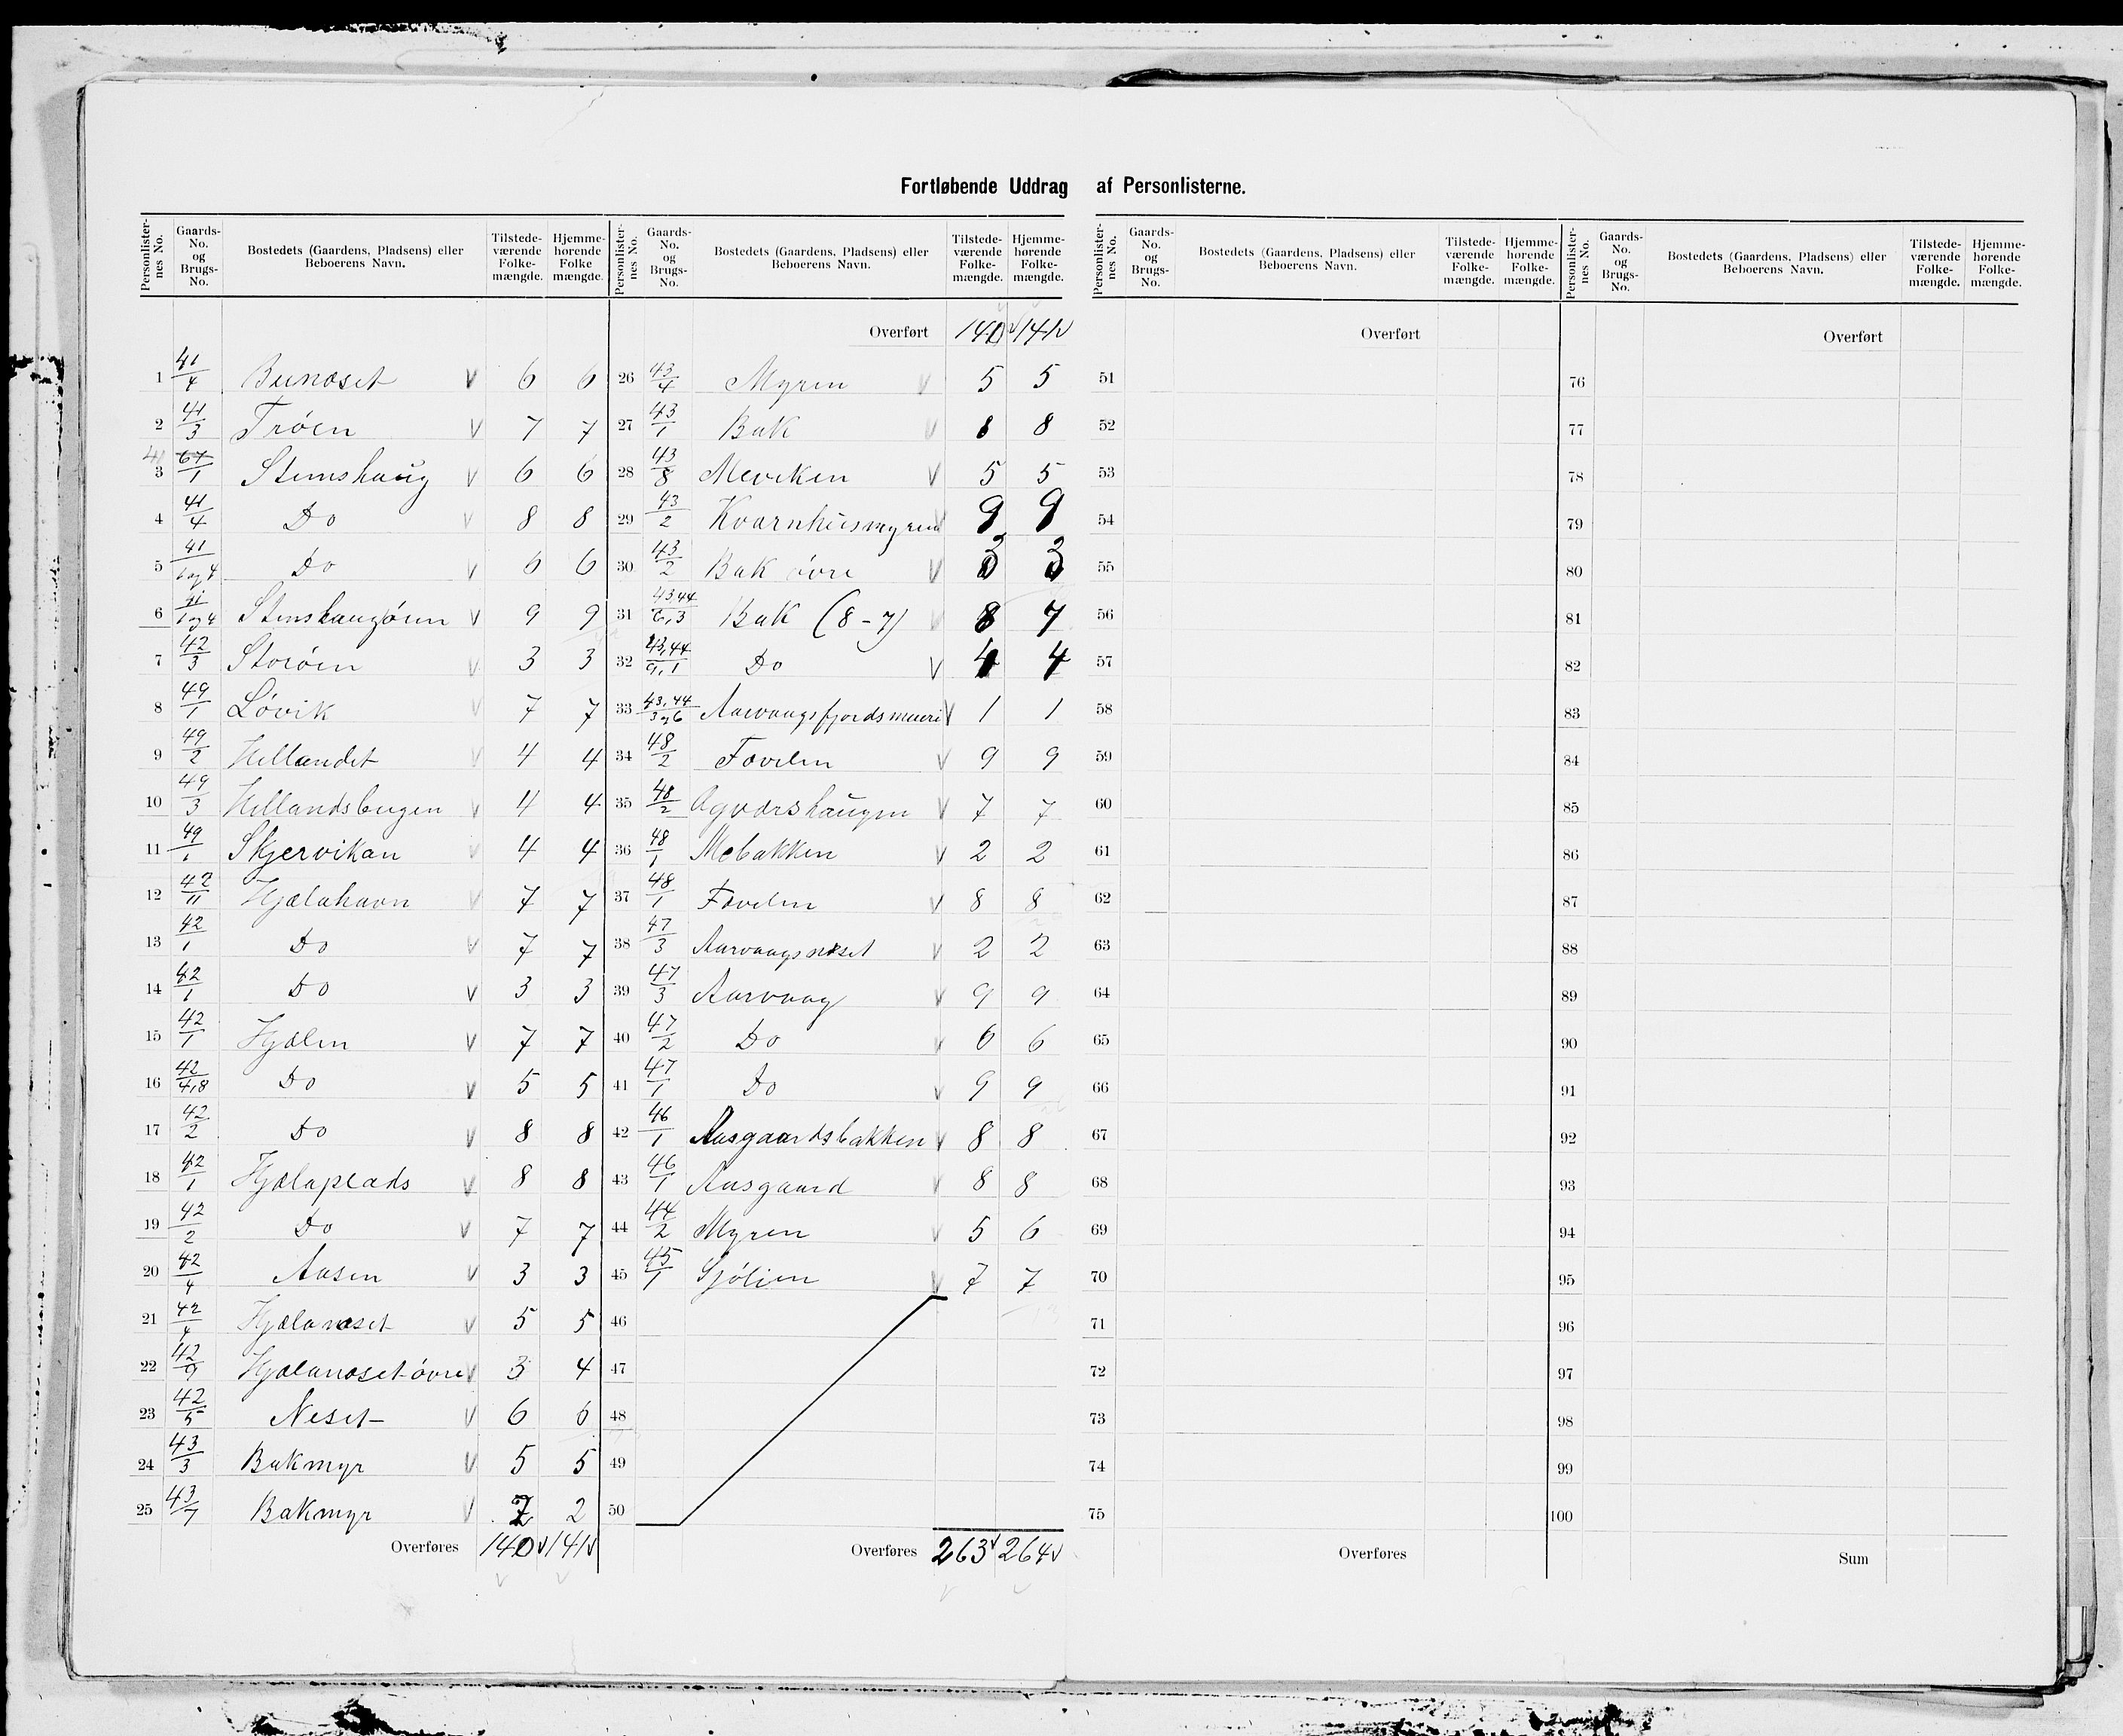 Fortløbende Uddrag af Personlisterne.
Personlister-nes No. Gaards-No. og Brugs-No. Bostedets (Gaardens, Pladsens) eller Beboerens Navn. Tilstede-værende Folke-mængde. Hjemme-hørende Folke mængde.
1 41/4 Bunæset V 6 6
2 41/3 Trøen V 7 7
3 41 67/1 Stemshaug V 6 6
4 41/4 Do V 8 8
5 41/1 og 4 Do V 6 6
6 41/1 og 4 Stemshaugøren V 9 9
7 42/3 Storøen V 3 3
8 49/1 Løvik V 7 7
9 49/2 Hellandet V 4 4
10 49/3 Hellandsbugen V 4 4
11 49/1 Skjervikan V 4 4
12 42/11 Hjælahavn V 7 7
13 42/1 Do V 7 7
14 42/1 Do V 3 3
15 42/1 Hjælen V 7 7
16 42/4,8 Do V 5 5
17 42/2 Do V 8 8
18 42/1 Hjælaplads V 8 8
19 42/2 Do V 7 7
20 42/4 Aasen V 3 3
21 42/4 Hjælanæset V 5 5
22 42/9 Hjælanæset øvre V 3 4
23 42/5 Neset V 6 6
24 43/3 Bakmyr V 5 5
25 43/7 Bakmyr V 2 2
Overføres 140 V 141 V
Personlister-nes No. Gaards-No. og Brugs-No. Bostedets (Gaardens, Pladsens) eller Beboerens Navn. Tilstede-værende Folke-mængde. Hjemme-hørende Folke-mængde.
Overført 140 V 141 V
26 43/4 Myren V 5 5
27 43/1 Bak V 8 8
28 43/8 Meviken V 5 5
29 43/2 Kvarnhusmyren V 9 9
30 43/2 Bak øvre V 3 3
31 43,44/6,3 Bak (8-7) V 8 7
32 43,44/9,1 Do V 4 4
33 43,44/3 og 6 Aarvaagsfjordsmeieri V 1 1
34 48/2 Fævelen V 9 9
35 48/2 Agvorshaugen V 7 7
36 48/1 Mebakken V 2 2
37 48/1 Fævelen V 8 8
38 47/3 Aarvaagsnæset V 2 2
39 47/3 Aarvaag V 9 9
40 47/2 Do V 6 6
41 47/1 Do V 9 9
42 46/1 Aasgaardsbakken V 8 8
43 46/1 Aasgaard V 8 8
44 44/2 Myren V 5 6
45 45/1 Sjølien V 7 7
46
47
48
49
50
Overføres 263 V 264 V
Personlister-nes No. Gaards-No. og Brugs-No. Bostedets (Gaardens, Pladsens) eller Beboerens Navn. Tilstede-værende Folke-mængde. Hjemme-hørende Folke-mængde.
Overført
51
52
53
54
55
56
57
58
59
60
61
62
63
64
65
66
67
68
69
70
71
72
73
74
75
Overføres
Personlister-nes No. Gaards-No. og Brugs-No. Bostedets (Gaardens, Pladsens) eller Beboerens Navn. Tilstede-værende Folke-mængde. Hjemme-hørende Folke-mængde.
Overført
76
77
78
79
80
81
82
83
84
85
86
87
88
89
90
91
92
93
94
95
96
97
98
99
100
Sum